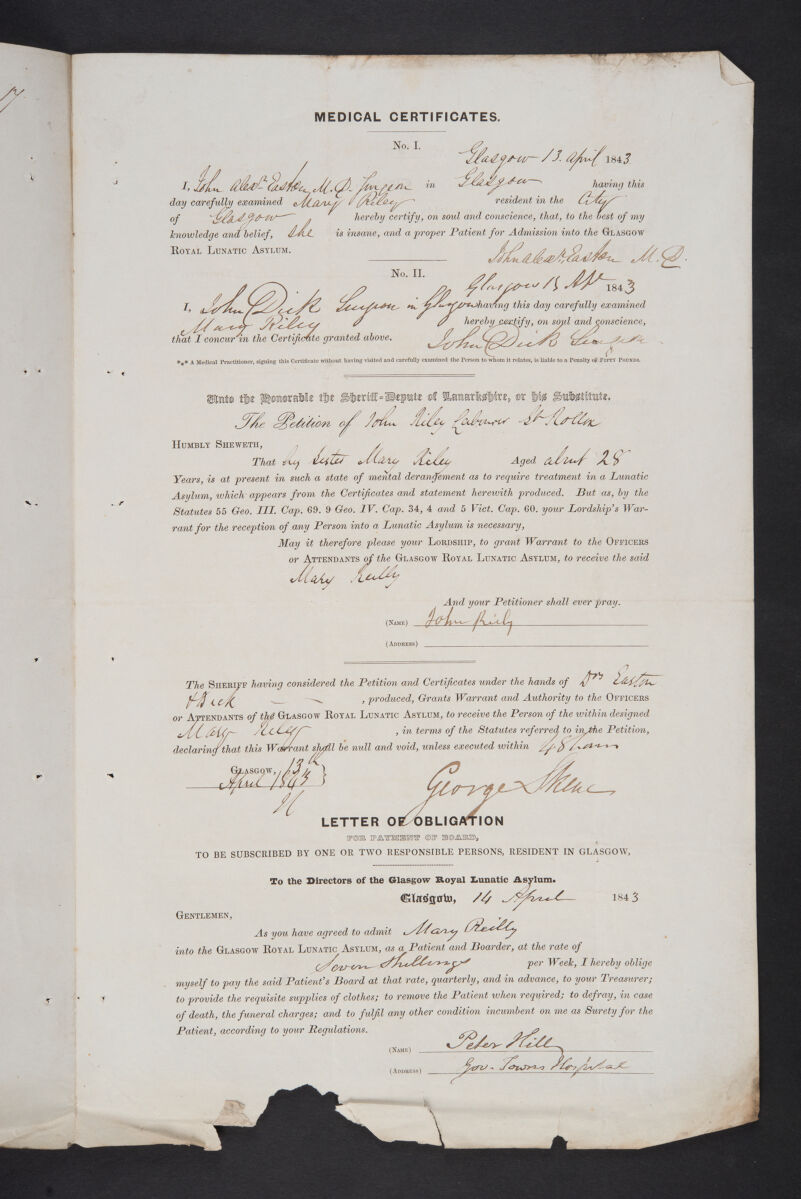 MEDICAL CERTIFICATES.
No. I.
Glasgow 13. April 1843
I, John Alexr. Easton, M. D. Surgeon in Glasgow having this
day carefully examined Mary Riley resident in the City
of Glasgow hereby certify, on soul and conscience, that, to the best of my
knowledge and belief, she is insane, and a proper Patient for Admission into the GLASGOW
ROYAL LUNATIC ASYLUM.
John Alexr. Easton M. D.
No. II.
Glasgow 13 Apl 1843
I, John Dick Surgeon in Glasgow having this day carefully examined
Mary Riley hereby certify, on soul and conscience,
that I concur in the Certificate granted above. John Dick Surgeon
*** A Medical Practitioner, signing this Certificate without having visited and carefully examined the Person to whom it relates, is liable to a Penalty of FIFTY POUNDS.
Unto the Honorable the Sheriff-Depute of Lanarkshire, or his Substitute.
The Petition of John Riley Labourer St Rollox
HUMBLY SHEWETH,
That my Sister Mary Riley Aged about 28
Years, is at present in such a state of mental derangement as to require treatment in a Lunatic
Asylum, which appears from the Certificates and statement herewith produced. But as, by the
Statutes 55 Geo. III. Cap. 69. 9 Geo. IV. Cap. 34, 4 and 5 Vict. Cap. 60. your Lordship's War-
rant for the reception of any Person into a Lunatic Asylum is necessary,
May it therefore please your LORDSHIP, to grant Warrant to the OFFICERS
or ATTENDANTS of the GLASGOW ROYAL LUNATIC ASYLUM, to receive the said
Mary Reilly
And your Petitioner shall ever pray.
(NAME) John Riely
(ADDRESS)
The SHERIFF having considered the Petition and Certificates under the hands of Drs Easton
& Dick , produced, Grants Warrant and Authority to the OFFICERS
or ATTENDANTS of the GLASGOW ROYAL LUNATIC ASYLUM, to receive the Person of the within designed
Mary Riley , in terms of the Statutes referred to in the Petition,
declaring that this Warrant shall be null and void, unless executed within 48 hours
GLASGOW, 13th
April 1843
George Skene
LETTER OF OBLIGATION
FOR PAYMENT OF BOARD,
TO BE SUBSCRIBED BY ONE OR TWO RESPONSIBLE PERSONS, RESIDENT IN GLASGOW,
To the Directors of the Glasgow Royal Lunatic Asylum.
Glasgow, 14 April 1843
GENTLEMEN,
As you have agreed to admit Mary Reilly
into the GLASGOW ROYAL LUNATIC ASYLUM, as a Patient and Boarder, at the rate of
Seven Shillings per Week, I hereby oblige
myself to pay the said Patient's Board at that rate, quarterly, and in advance, to your Treasurer;
to provide the requisite supplies of clothes; to remove the Patient when required; to defray, in case
of death, the funeral charges; and to fulfil any other condition incumbent on me as Surety for the
Patient, according to your Regulations.
(NAME) Peter Hill
(ADDRESS) Gov. Towns Hospital